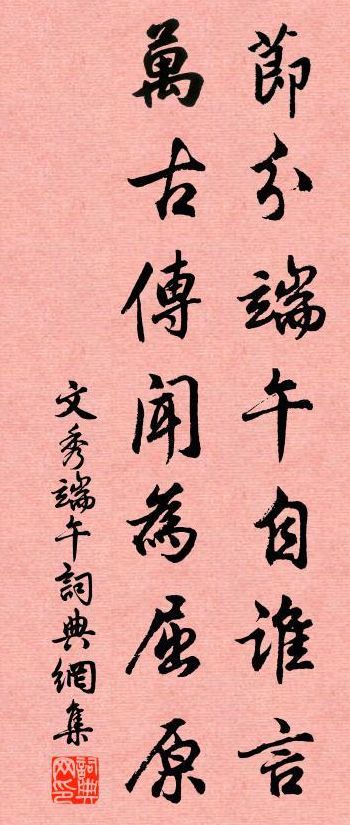 節分端午自誰言
萬古傳聞為屈原
文秀端午詞典網集
詞典网印